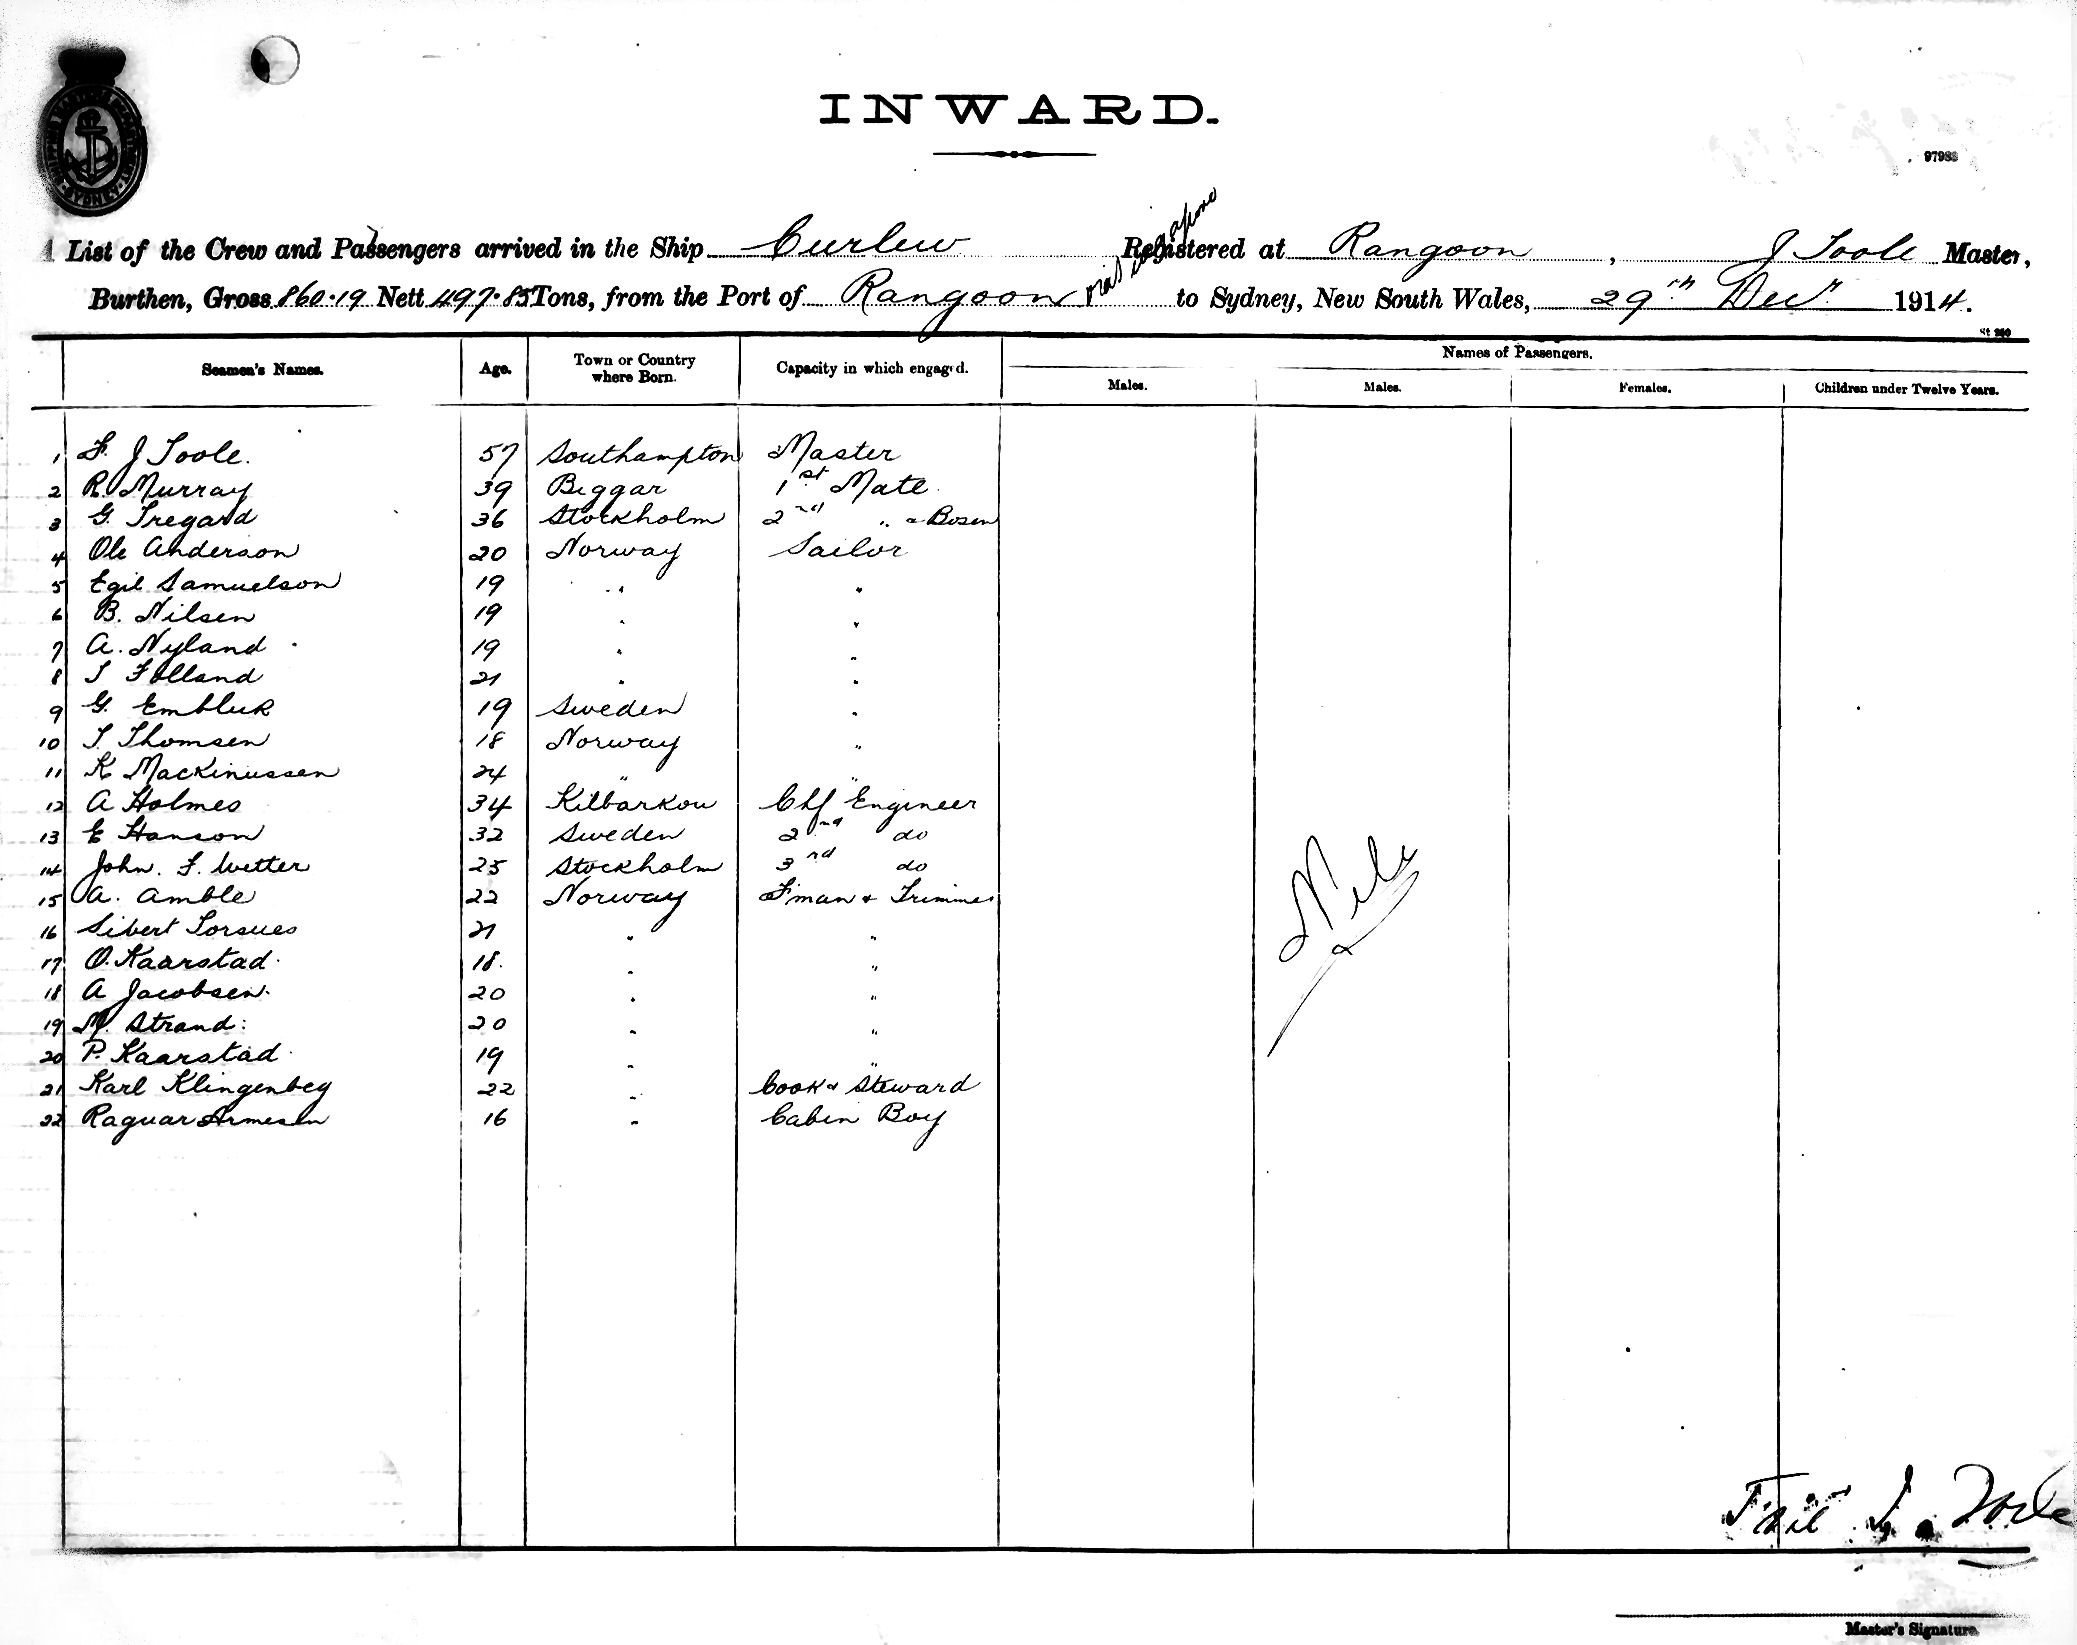 INWARD.
97983
A List of the Crew and Passengers arrived in the Ship Curlew Registered at Rangoon, J Toole Master,
Burthen, Gross 860.19 Nett 497.85 Tons, from the Port of Rangoon via Singapore to Sydney, New South Wales, 29th Decr 1914.
St 250
Seamen's Names. Age. Town or Country where Born. Capacity in which engaged. Names of Passengers.
Males. Males. Females. Children under Twelve Years.
1 F. J Toole. 57 Southampton Master
2 R. Murray 39 Biggar 1st Mate
3 G. Tregard 36 Stockholm 2nd " & Bosen
4 Ole Anderson 20 Norway Sailor
5 Egil Samuelson 19 " "
6 B. Nilsen 19 " "
7 A. Nyland 19 " "
8 T Folland 21 " "
9 G. Embluk 19 Sweden "
10 T. Thomsen 18 Norway "
11 K Mackinussen 24 " "
12 A Holmes 34 Kilbarkou Chf Engineer
13 E Hanson 32 Sweden 2nd do
14 John. F. Wetter 25 Stockholm 3rd do
15 A. Amble 22 Norway F'man & Trimmer
16 Sibert Torsues 21 " "
17 O. Kaarstad 18. " "
18 A Jacobsen. 20 " "
19 M. Strand: 20 " "
20 P. Kaarstad 19 " "
21 Karl Klingenbeg 22 " Cook & Steward
22 Raguar Armesen 16 " Cabin Boy
Nil
J. Toole
Master's Signature.